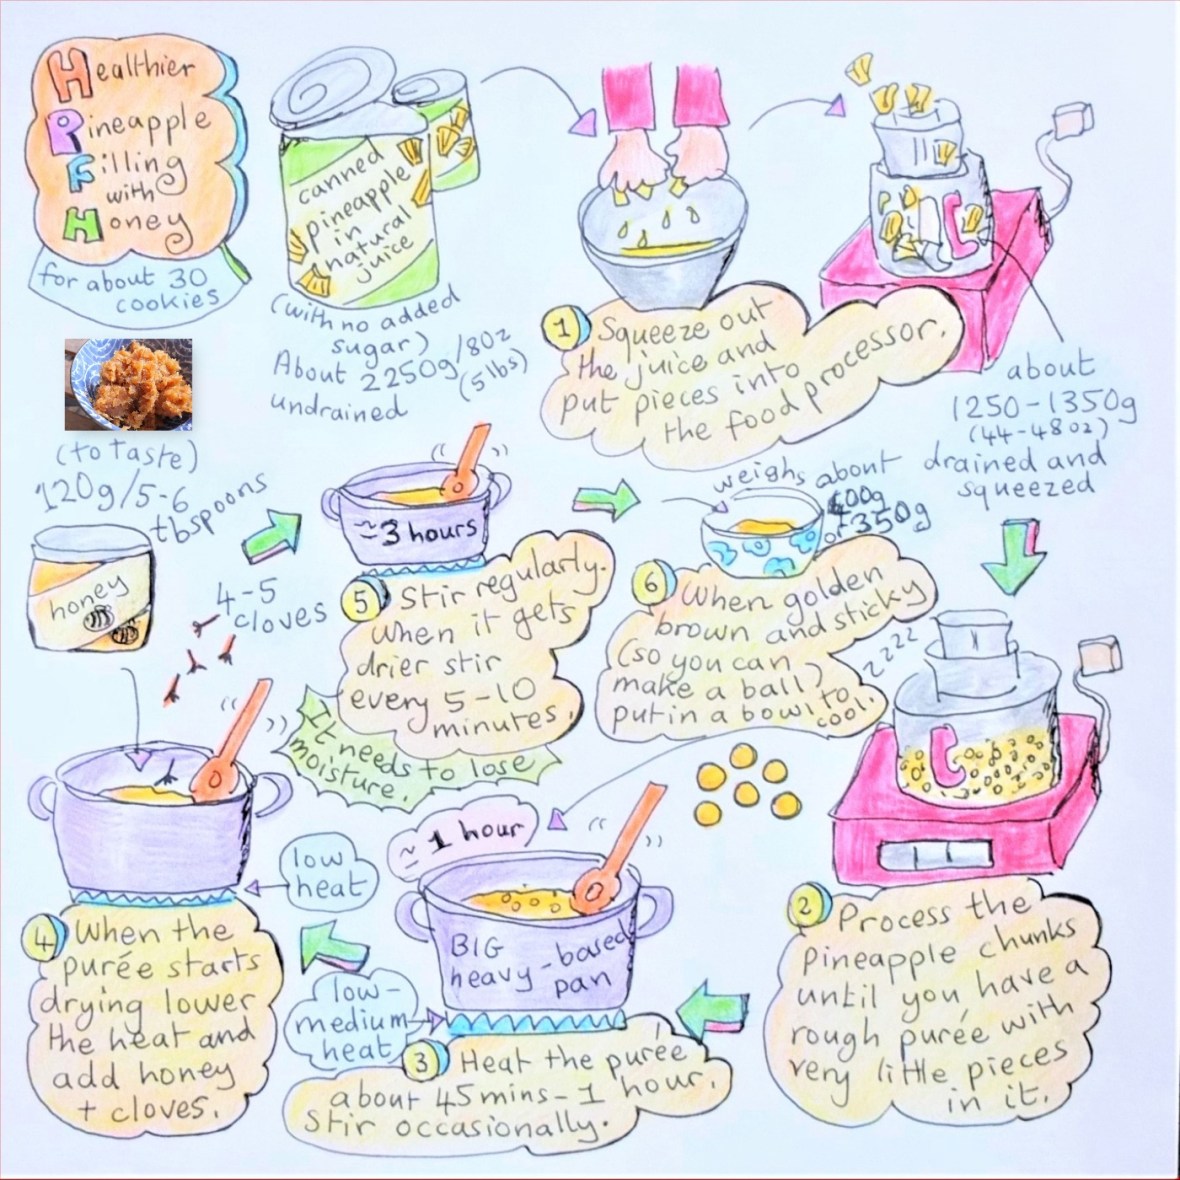 Healthier
Pineapple
Filling
with
Honey
for about 30
cookies
canned
pineapple
in
natural
juice
(with no added
sugar)
About 2250g/80z
(5lbs)
undrained
1 Squeeze out
the juice and
put pieces into
the food processor.
about
1250-1350g
(44-48oz)
drained and
squeezed
2 Process the
pineapple chunks
until you have a
rough purée with
very little pieces
in it.
zzzz
≃ 1 hour
BIG
heavy-based
pan
low-
medium
heat
3 Heat the purée
about 45mins-1 hour.
Stir occasionally.
(to taste)
120g/5-6
tbspoons
honey
4-5
cloves
low
heat
4 When the
purée starts
drying lower
the heat and
add honey
+ cloves.
≃3 hours
5 Stir regularly.
When it gets
drier stir
every 5-10
minutes.
It needs to lose
moisture.
weighs about
350g
6 When golden
brown and sticky
(so you can
make a ball)
put in a bowl to
cool.